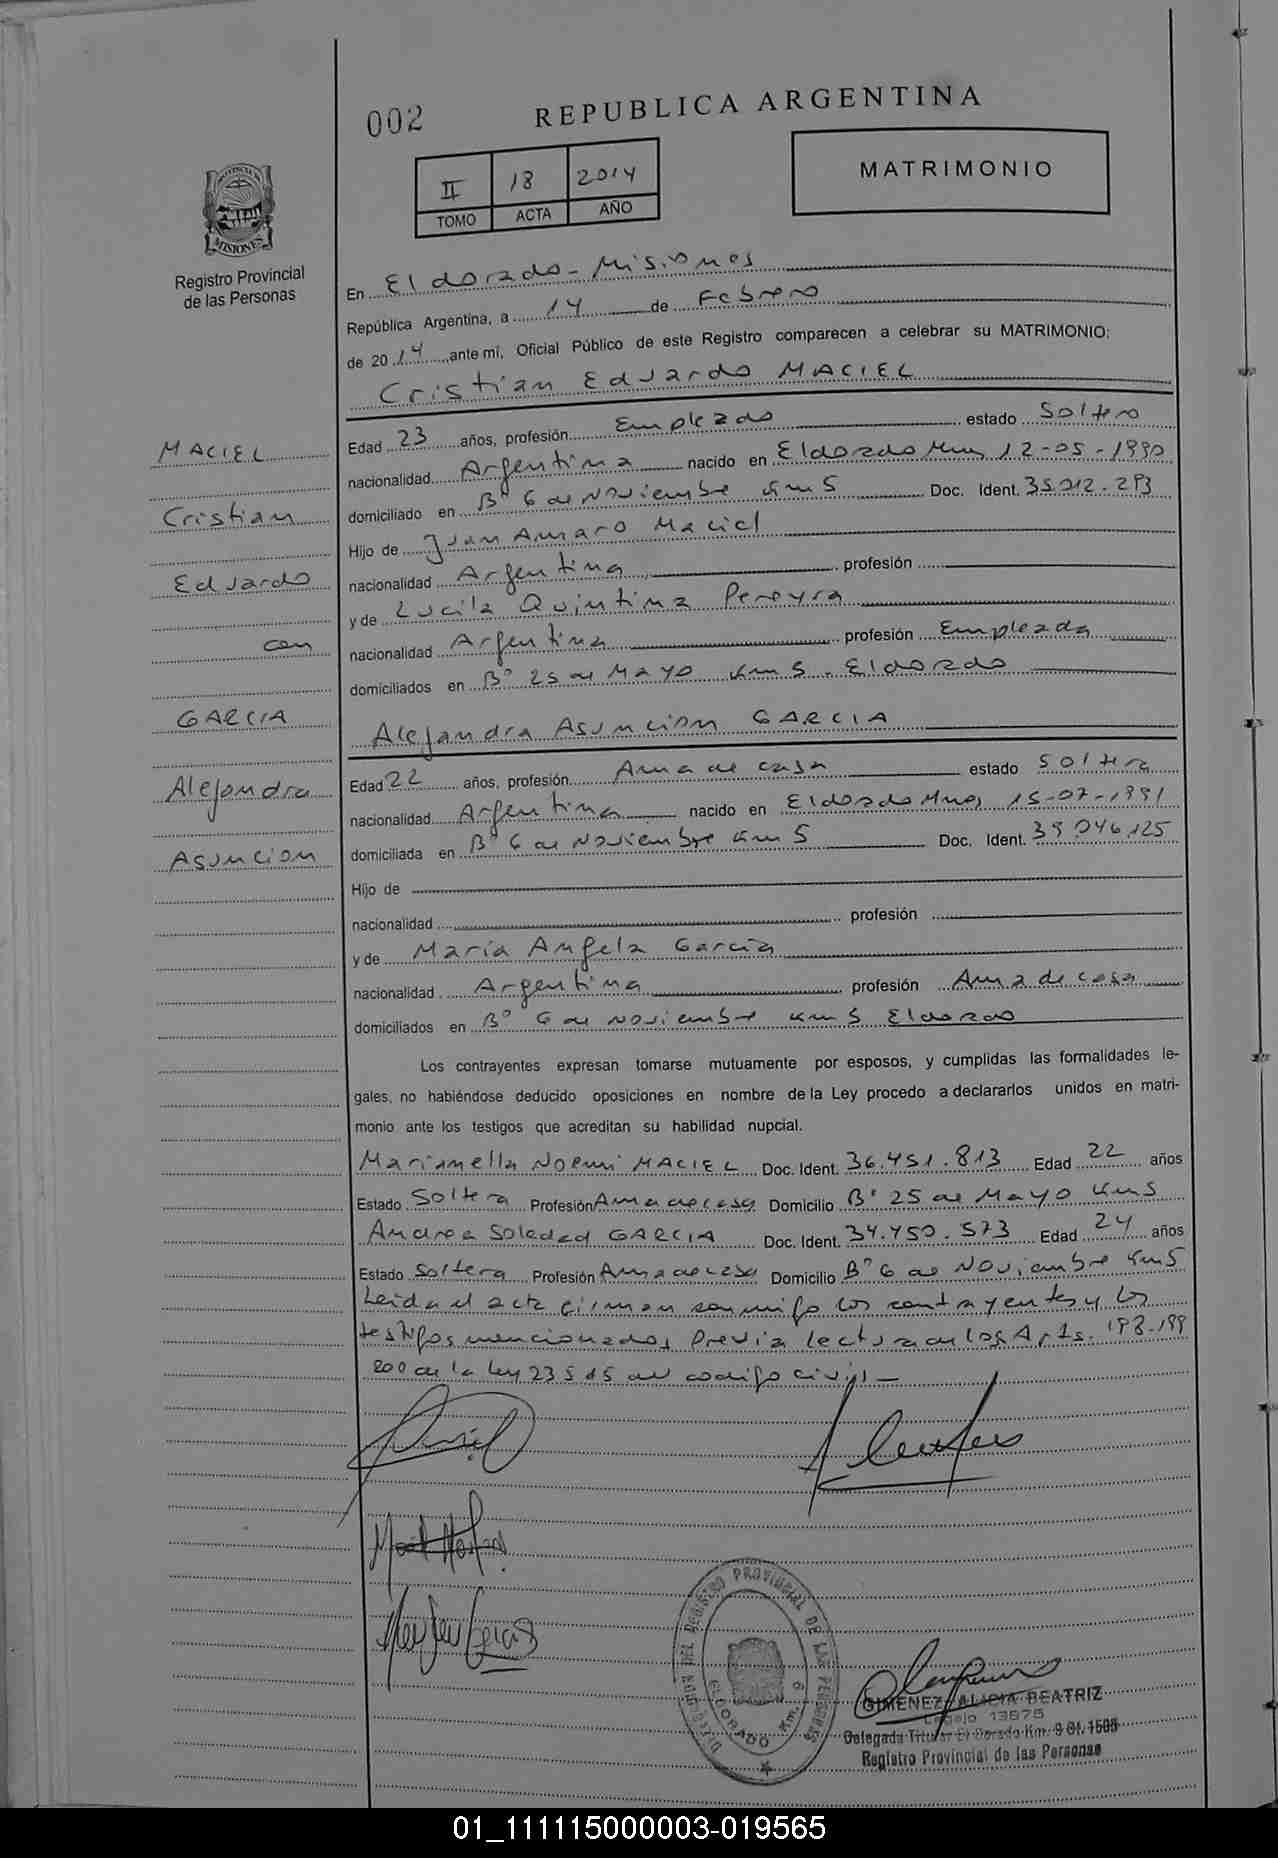 002
REPUBLICA ARGENTINA
II 18 2014
TOMO ACTA AÑO
MATRIMONIO
PROVINCIA DE
MISIONES
Registro Provincial
de las Personas
En Eldorado - Misiones
República Argentina, a 14 de Febrero
de 2014 ante mí, Oficial Público de este Registro comparecen a celebrar su MATRIMONIO:
Cristian Eduardo MACIEL
Edad 23 años, profesión Empleado estado Soltero
nacionalidad Argentina nacido en Eldorado Mnes 12-05-1990
domiciliado en Bº 6 de Noviembre Km 5 Doc. Ident. 35.012.293
Hijo de Juan Amaro Maciel
nacionalidad Argentina profesión
y de Lucila Quintina Pereyra
nacionalidad Argentina profesión Empleada
domiciliados en Bº 25 de Mayo Km 5. Eldorado
Alejandra Asuncion GARCIA
Edad 22 años, profesión Ama de casa estado Soltera
nacionalidad Argentina nacido en Eldorado Mnes 15-07-1991
domiciliada en Bº 6 de Noviembre Km 5 Doc. Ident. 39.046.125
Hijo de
nacionalidad profesión
y de María Angela Garcia
nacionalidad Argentina profesión Ama de casa
domiciliados en Bº 6 de Noviembre Km 5 Eldorado
MACIEL
Cristian
Eduardo
con
GARCIA
Alejandra
Asuncion
Los contrayentes expresan tomarse mutuamente por esposos, y cumplidas las formalidades le-
gales, no habiéndose deducido oposiciones en nombre de la Ley procedo a declararlos unidos en matri-
monio ante los testigos que acreditan su habilidad nupcial.
Marianella Noemi MACIEL Doc. Ident. 36.451.813 Edad 22 años
Estado Soltera Profesión Ama de casa Domicilio Bº 25 de Mayo Km 5
Andrea Soledad GARCIA Doc. Ident. 34.450.573 Edad 24 años
Estado Soltera Profesión Ama de casa Domicilio Bº 6 de Noviembre Km 5
Leida el acta firman conmigo los contrayentes y los
testigos mencionados, previa lectura de los Arts. 198-199
200 de la Ley 23515 del codigo civil -
DIRECCION DEL REGISTRO PROVINCIAL DE LAS PERSONAS
ELDORADO Km. 9
GIMENEZ, ALICIA BEATRIZ
Legajo 13875
Delegada Titular El Dorado Km. 9 Of. 1505
Registro Provincial de las Personas
01_111115000003-019565